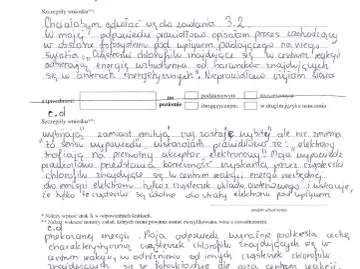 Szczegóły wniosku**:
Chciałabym odwołać się do zadania 3.2.
W mojej odpowiedzi prawidłowo opisałam proces zachodzący
w obszarze fotosystemu pod wpływem padającego na niego
światła. „Cząsteczki chlorofilu znajdujące się w centrum reakcji
odbierają energię wzbudzenia od barwników znajdujących
się w antenach energetycznych". Nieprawidłowo użyłam słowa
z (przedmiot)
na poziomie
podstawowym
rozszerzonym
dwujęzycznym
w drugim języku nauczania
Szczegóły wniosku**:
c.d
wybijają" zamiast emitują" np zostaje wybity" ale nie zmienia
to sensu wypowiedzi, wskazałam prawidłowo że: „elektrony
trafiają na pierwotny akceptor elektronowy". Moja wypowiedź
prawidłowo przedstawia konieczność uzyskania przez cząsteczki
chlorofilu znajdujące się w centrum reakcji energii niezbędnej
do emisji elektronu tylko z cząsteczek układu antenowego i wskazuje,
że tylko te cząsteczki są zdolne do utraty elektronu pod wpływem
podpis zdającego
* Należy wpisać znak X w odpowiednich kratkach.
** Należy wskazać numery zadań, których ocena powinna zostać zweryfikowana, wraz z uzasadnieniem.
c.d
przekazanej energii. Moja odpowiedź wyraźnie podkreśla cechę
charakterystyczną cząsteczek chlorofilu znajdujących się w
centrum reakcji, w odróżnieniu od innych cząsteczek chlorofilu
znajdujących się w fotoukładzie dla roza centrum reakcji.